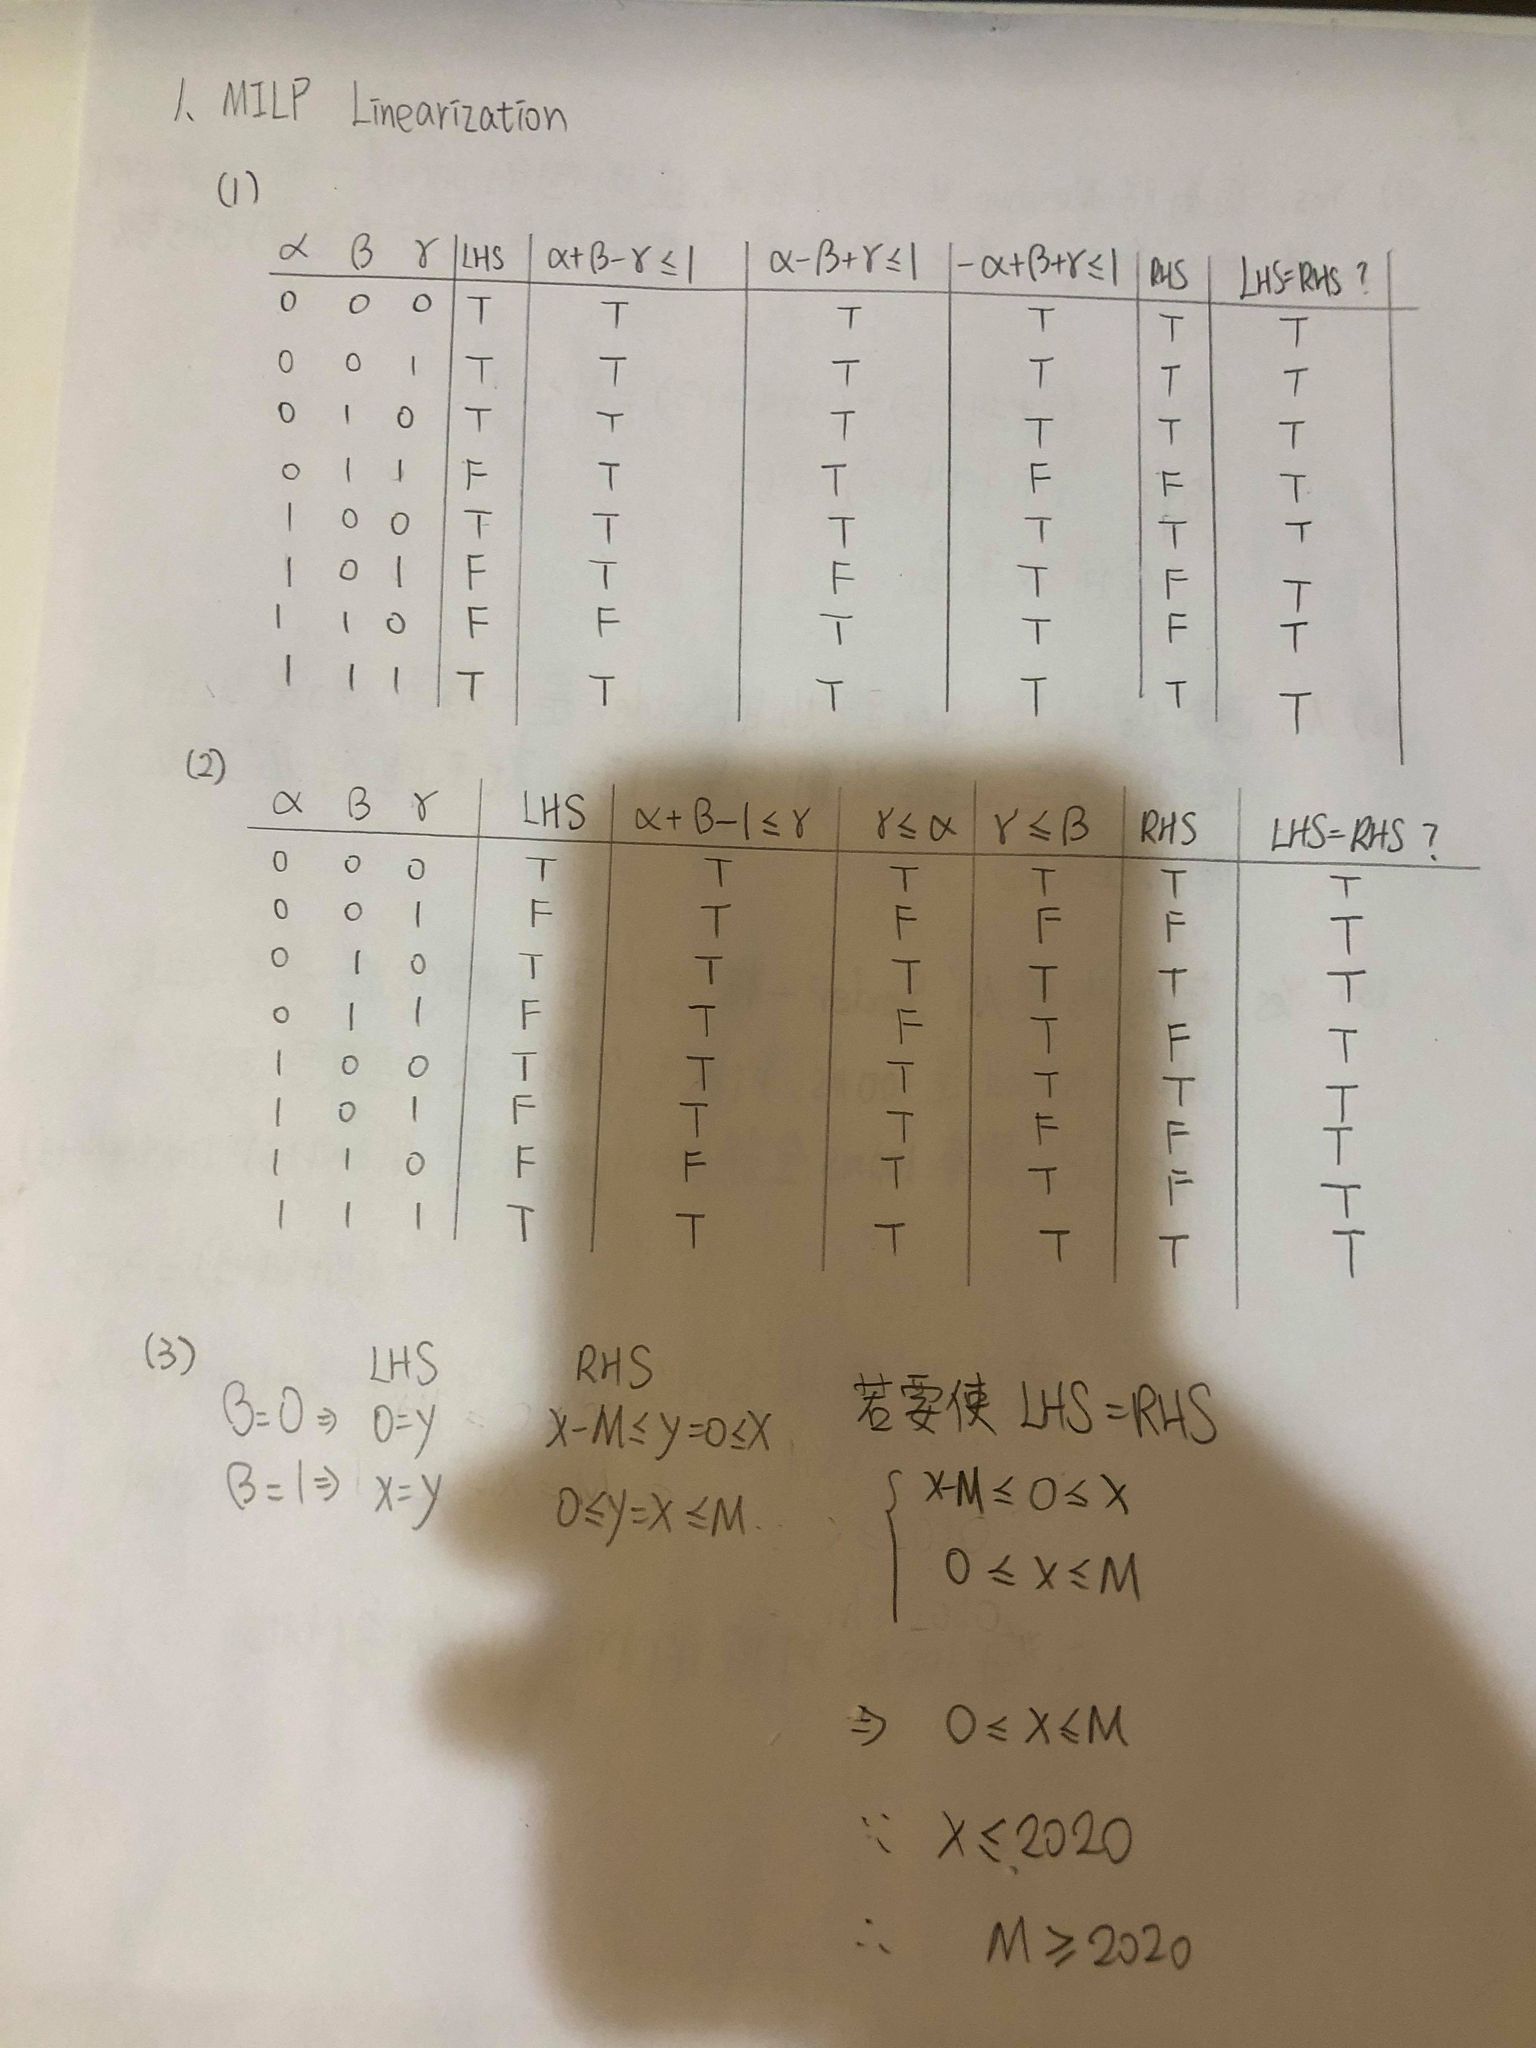 1、MILP Linearization
(1)
α β γ LHS α+β-γ≤1 α-β+γ≤1 -α+β+γ≤1 RHS LHS=RHS ?
0 0 0 T T T T T T
0 0 1 T T T T T T
0 1 0 T T T T T T
0 1 1 F T T F F T
1 0 0 T T T T T T
1 0 1 F T F T F T
1 1 0 F F T T F T
1 1 1 T T T T T T
(2)
α β γ LHS α+β-1≤γ γ≤α γ≤β RHS LHS=RHS ?
0 0 0 T T T T T T
0 0 1 F T F F F T
0 1 0 T T T T T T
0 1 1 F T F T F T
1 0 0 T T T T T T
1 0 1 F T T F F T
1 1 0 F F T T F T
1 1 1 T T T T T T
(3) LHS RHS
β=0 ⇒ 0=y x-M≤y=0≤x 若要使 LHS=RHS
β=1 ⇒ x=y 0≤y=x≤M
{ x-M≤0≤x
0≤x≤M
⇒ 0≤x≤M
∵ x≤2020
∴ M≥2020